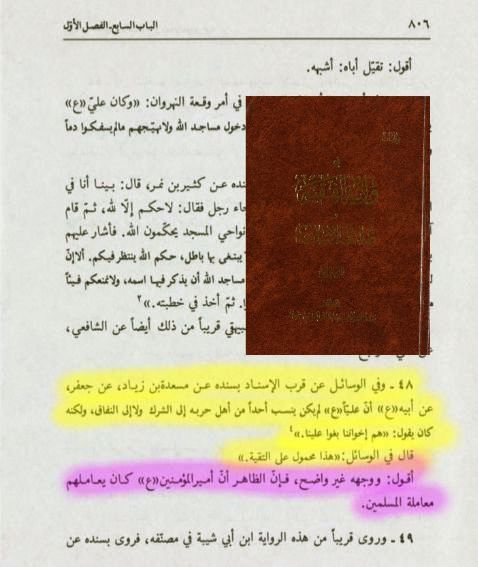 ٨٠٦
الباب السابع ـ الفصل الأوّل
أقول: تقيّل أباه: أشبهه.
في أمر وقعة النهروان: «وكان عليّ«ع»
دخول مساجد الله ولايهتجهم مالم‌يسفكوا دماً
سنده عن كثيربن نمر، قال: بينا أنا في
جاء رجل فقال: لاحكم إلّا لله، ثمّ قام
نواحي المسجد يحكّمون الله. فأشار عليهم
يبتغى بها باطل، حكم الله ينتظرفيكم. ألاإنّ
مساجد الله أن يذكرفيها اسمه، ولانمنعكم فيئاً
ثمّ أخذ في خطبته.»٢
قريباً من ذلك أيضاً عن الشافعي،
٤٨ ـ وفي الوسائل عن قرب الإسناد بسنده عن مسعدةبن زياد، عن جعفر،
عن أبيه«ع» أنّ عليّاً«ع» لم‌يكن ينسب أحداً من أهل حربه إلى الشرك ولاإلى النفاق، ولكنه
كان يقول: «هم إخواننا بغوا علينا.»٤
قال في الوسائل:«هذا محمول على التقية.»
أقول: ووجهه غير واضح، فإنّ الظاهر أنّ أميرالمؤمنين«ع» كان يعاملهم
معاملة المسلمين.
٤٩ ـ وروى قريباً من هذه الرواية ابن أبي شيبة في مصنّفه، فروى بسنده عن